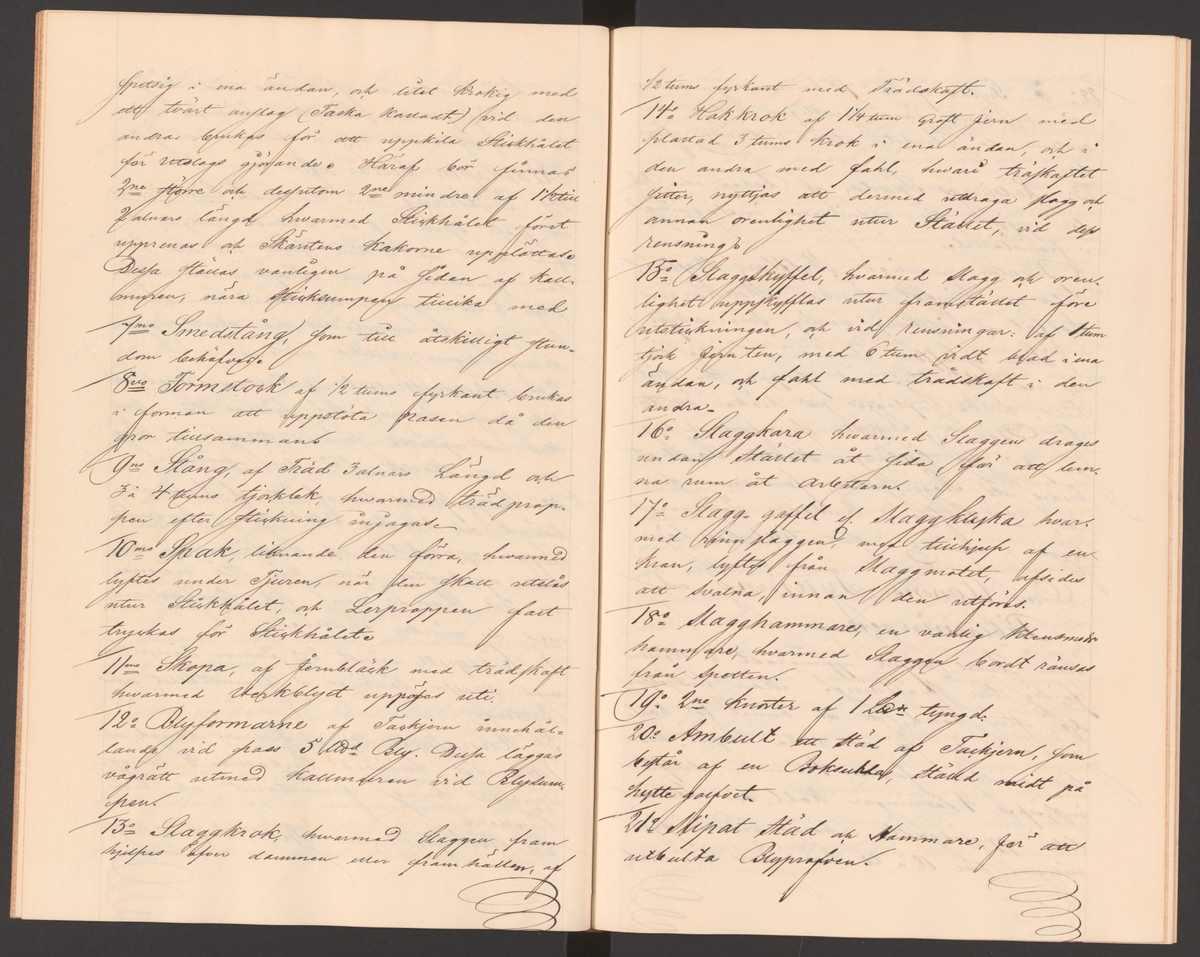 spetsig i ena ändan, och litet krokig med
ett tvärt anslag (Taska kalladt) vid den
andra: brukas för att uppkila Stickhålet
för utslags gjörande. Häraf bör finnas
2ne större och dessutom 2ne mindre af 1 1/2 till
2 alnars längd hwarmed Stickhålet först
upprenas och Skärstens kakorne upplättas.
Dessa ställas vanligen på sidan af kall-
muren, nära sticksumpen tillika med
7mo Smedstång, som till åtskilligt stun-
dom behöfves.
8vo Formstock af 1/2 tums fyrkant brukas
i forman att uppstöta nasen då den
gror tillsammans
9no Stång, af Träd 3 alnars Längd och
3 à 4 tums tjocklek, hwarmed trädprop-
pen efter stickning injagas.
10mo Spak, liknande den förra, hwarmed
lyftes under Tjuren, när den skall utslås
utur Stickhålet, och Lerproppen fast
tryckas för Stickhålet.
11mo Skopa, af Jernbläck med trädskaft
hwarmed verkblyet uppöses uti.
12o Blyformarne af Tackjern innehål-
lande vid pass 5 Lisd Bly. Dessa läggas
vågrätt utmed kallmuren vid Blysum-
pen.
13o Slaggkrok, hwarmed Slaggen fram
hjelpes öfver dammen eller framhällen, af
1/2 tums fyrkant med Trädskaft.
14o Hakkrok af 1 1/4 tum groft jern med
plattad 3 tums krok i ena ändan, och i
den andra med fahl, hwari träskaftet
sitter, nyttjas att dermed utdraga slagg och
annan orenlighet utur Stället, vid dess
rensning.
15o Slaggskyffel, hwarmed slagg och oren-
lighet uppskyfflas utur framstället före
utstickningen, och vid rensningar: af 1 tum
tjock jernten, med 6 tum vidt blad i ena
ändan, och fahl med trädskaft i den
andra.
16o Slaggkara hwarmed Slaggen drages
undan Stället åt sida för att lem-
na rum åt arbetarn.
17o Slagg-gaffel el. Slaggklyka hvar-
med ringslaggen, med tillhjelp af en
kran, lyftes från Slaggmotet, afsides
att svalna, innan den utföres.
18o Slagghammare, en vanlig klensmeds
hammare, hvarmed Slaggen bordt ränsas
från Spotten.
19o 2ne Knoster af 1 tyngd.
20o Ambult ett städ af Tackjern, som
består af en Boksula, stäld midt på
hytte golfvet.
21o Stipat Städ och Hammare, för att
utbulta Blyprofven.